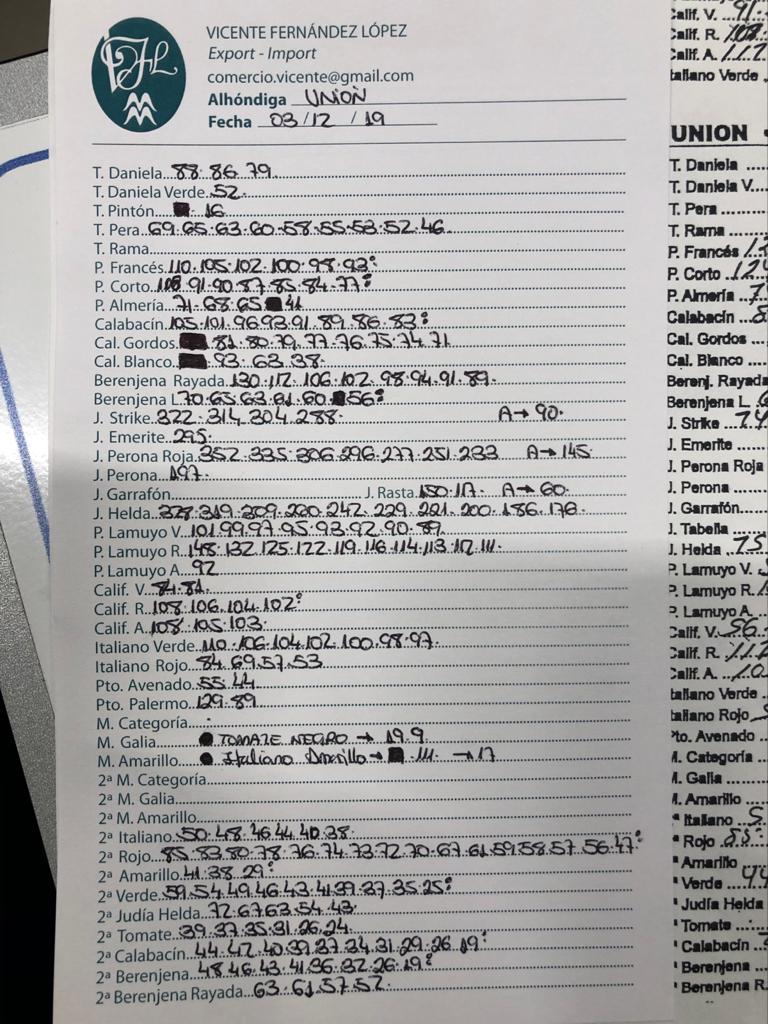 VICENTE FERNÁNDEZ LÓPEZ
Export - Import
comercio.vicente@gmail.com
Alhóndiga UNION
Fecha 03/12/19
T. Daniela 88.86.79
T. Daniela Verde 52.
T. Pintón 16
T. Pera 69.65.63.60.58.55.53.52.46
T. Rama
P. Francés 110.105.102.100.98.93:
P. Corto 108.91.90.87.85.84.77:
P. Almería 71.68.65 41
Calabacín 105.101.96.93.91.89.86.83:
Cal. Gordos 81.80.79.77.76.75.74.71
Cal. Blanco 93.63.38.
Berenjena Rayada 130.112.106.102.98.94.91.89.
Berenjena L 70.65.63.61.60 56:
J. Strike 322.314.304.288. A→90.
J. Emerite 295.
J. Perona Roja 352.335.306.296.277.251.233 A→145
J. Perona 197.
J. Garrafón J. Rasta 150.117. A→60
J. Helda 328.319.309.260.242.229.221.200.186.176.
P. Lamuyo V. 101.99.97.95.93.92.90.89.
P. Lamuyo R. 148.132.125.122.119.116.114.113.112.111.
P. Lamuyo A. 92
Calif. V. 84.81.
Calif. R. 108.106.104.102:
Calif. A. 108.105.103.
Italiano Verde 110.106.104.102.100.98.97.
Italiano Rojo 84.69.57.53
Pto. Avenado 55.44
Pto. Palermo 129.89
M. Categoría
M. Galia TOMATE NEGRO → 19.9
M. Amarillo Italiano Amarillo → 111. →17
2ª M. Categoría
2ª M. Galia
2ª M. Amarillo
2ª Italiano 50.48.46.44.40.38.
2ª Rojo 85.83.80.78.76.74.73.72.70.67.61.59.58.57.56.47:
2ª Amarillo 41.38.29:
2ª Verde 59.54.49.46.43.41.39.37.35.25:
2ª Judía Helda 72.67.63.54.43.
2ª Tomate 39.37.35.31.26.24
2ª Calabacín 44.42.40.39.37.34.31.29.26.19:
2ª Berenjena 48.46.43.41.36.32.26.19:
2ª Berenjena Rayada 63.61.57.52.
Calif. V.
Calif. R.
Calif. A. 112
Italiano Verde
UNION
T. Daniela
T. Daniela V.
T. Pera
T. Rama
P. Francés
P. Corto
P. Almería
Calabacín
Cal. Gordos
Cal. Blanco
Berenj. Rayada
Berenjena L
J. Strike
J. Emerite
J. Perona Roja
J. Perona
J. Garrafón
J. Tabella
J. Helda
P. Lamuyo V.
P. Lamuyo R.
P. Lamuyo A.
Calif. V.
Calif. R.
Calif. A.
Italiano Verde
Italiano Rojo
Pto. Avenado
M. Categoría
M. Galia
M. Amarillo
Italiano
Rojo
Amarillo
Verde
Judía Helda
Tomate
Calabacín
Berenjena
Berenjena R.